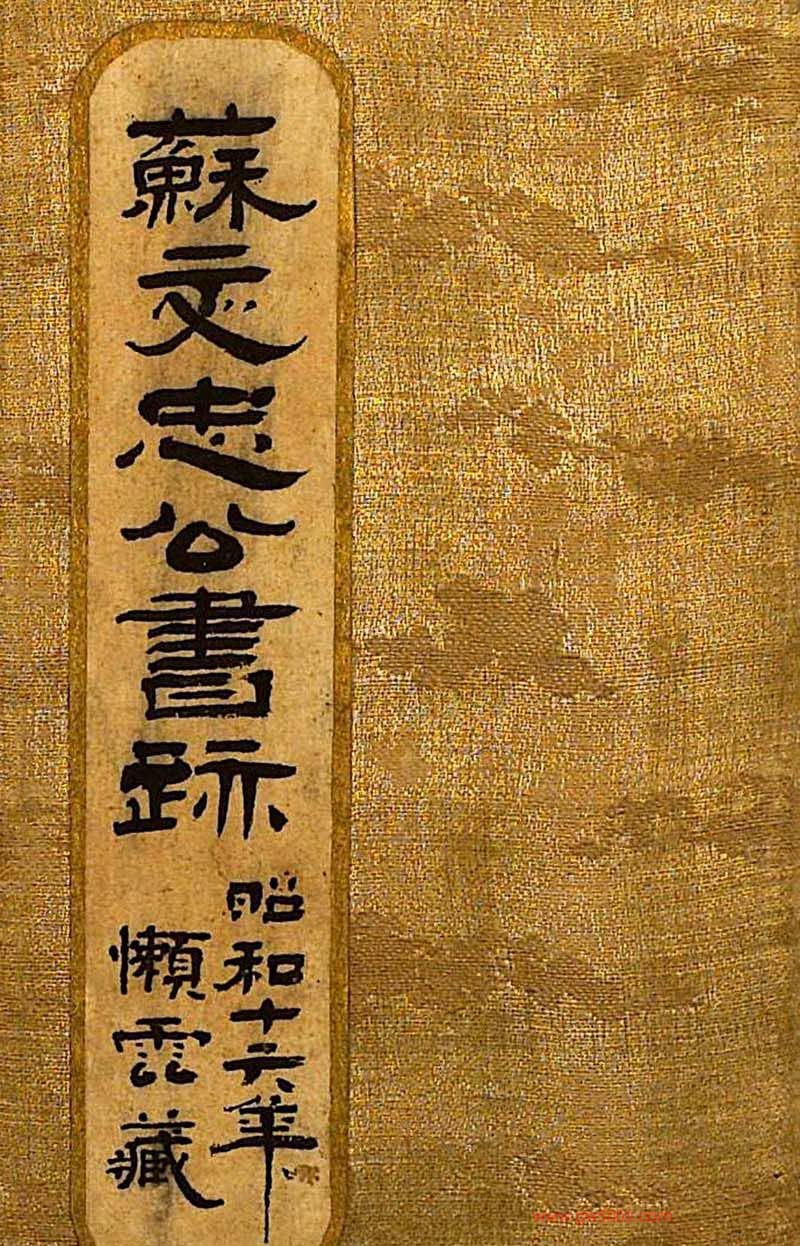 蘇文忠公書跡
昭和十六年
懶雲藏